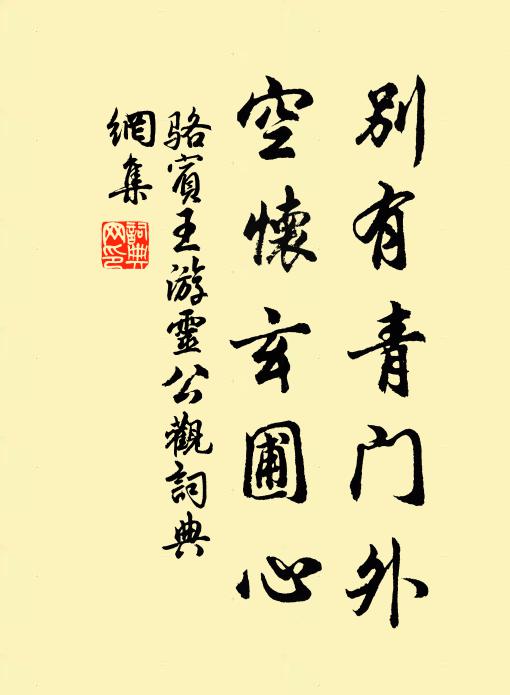 別有青门外
空懷玄圃心
駱賓王游靈公觀詞典
網集
詞典网印